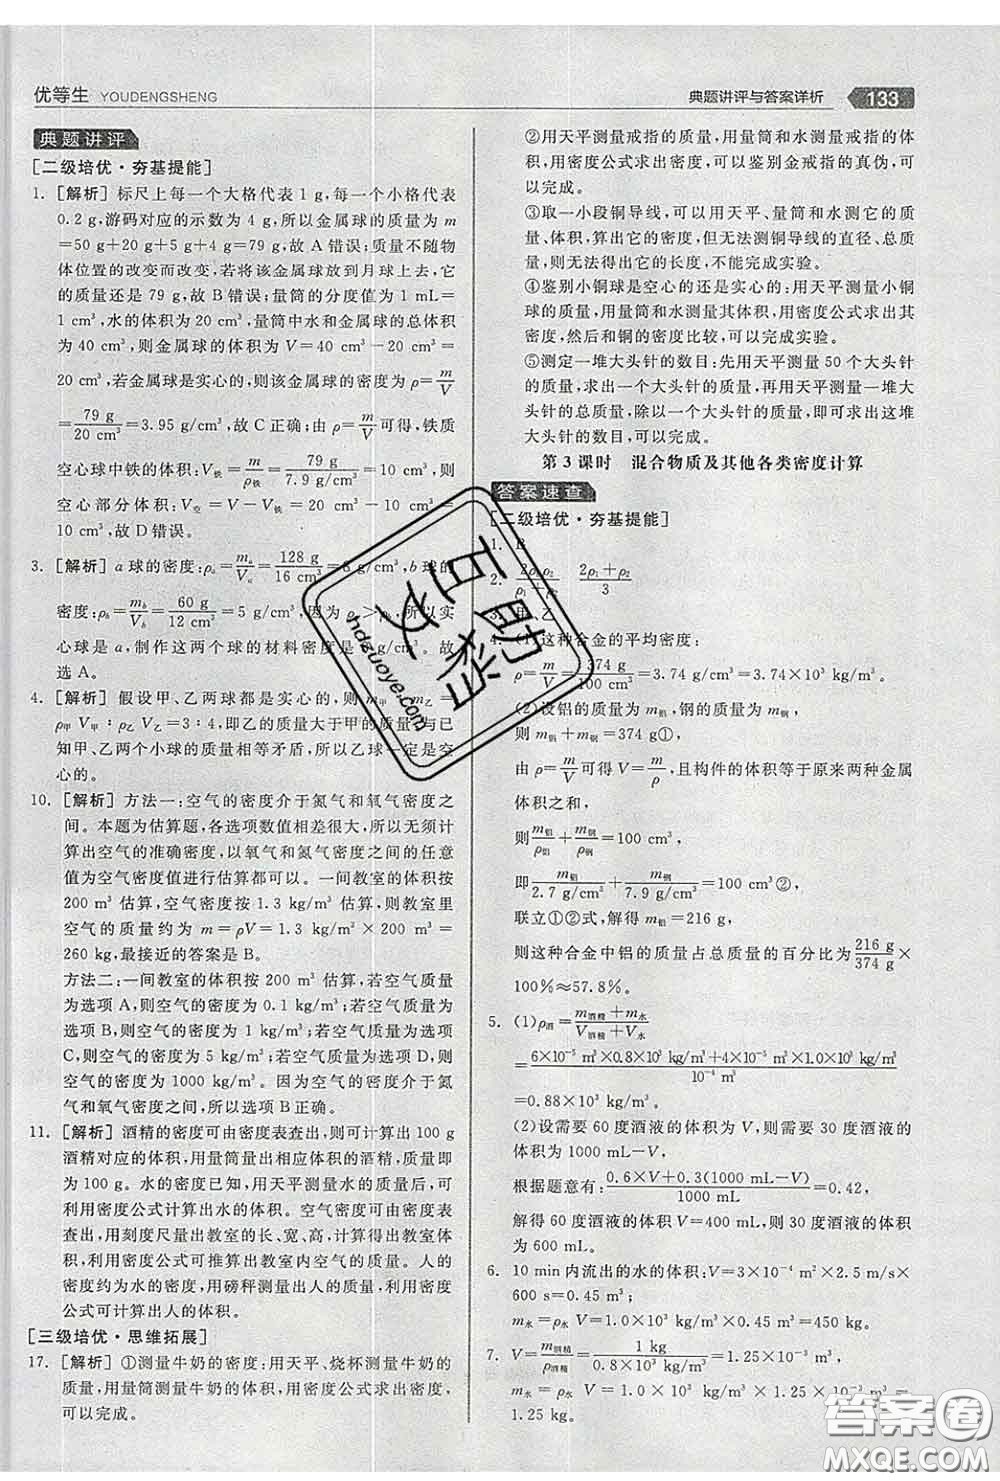 优等生 YOUDENGSHENG
典题讲评与答案详析 133
典题讲评
[二级培优·夯基提能]
1. [解析] 标尺上每一个大格代表 1 g,每一个小格代表
0.2 g,游码对应的示数为 4 g,所以金属球的质量为 m
=50 g+20 g+5 g+4 g=79 g,故 A 错误;质量不随物
体位置的改变而改变,若将该金属球放到月球上,它
的质量还是 79 g,故 B 错误;量筒的分度值为 1 mL=
1 cm³,水的体积为 20 cm³,量筒中水和金属球的总体
积为 40 cm³,则金属球的体积为 V=40 cm³-20 cm³=
20 cm³,若金属球是实心的,则该金属球的密度 ρ=m/V
=79 g/20 cm³=3.95 g/cm³,故 C 正确;由 ρ=m/V可得,铁质
空心球中铁的体积:V铁=m/ρ铁=79 g/7.9 g/cm³=10 cm³,则
空心部分体积:V空=V-V铁=20 cm³-10 cm³=
10 cm³,故 D 错误。
3. [解析] a 球的密度:ρa=ma/Va=128 g/16 cm³=8 g/cm³,b 球的
密度:ρb=mb/Vb=60 g/12 cm³=5 g/cm³,因为 ρa>ρb,所以实
心球是 a,制作这两个球的材料密度是 8 g/cm³。故
选 A。
4. [解析] 假设甲、乙两球都是实心的,则 m甲:m乙=
ρ甲 V甲:ρ乙 V乙=3:4,即乙的质量大于甲的质量,与已
知甲、乙两个小球的质量相等矛盾,所以乙球一定是空
心的。
10. [解析] 方法一:空气的密度介于氮气和氧气密度之
间。本题为估算题,各选项数值相差很大,所以无须计
算出空气的准确密度,以氧气和氮气密度之间的任意
值为空气密度值进行估算都可以。一间教室的体积按
200 m³ 估算,空气密度按 1.3 kg/m³ 估算,则教室里
空气的质量约为 m=ρV=1.3 kg/m³×200 m³=
260 kg,最接近的答案是 B。
方法二:一间教室的体积按 200 m³ 估算,若空气质量
为选项 A,则空气的密度为 0.1 kg/m³;若空气质量为
选项 B,则空气的密度为 1 kg/m³;若空气质量为选项
C,则空气的密度为 5 kg/m³;若空气质量为选项 D,则
空气的密度为 1000 kg/m³。因为空气的密度介于氮
气和氧气密度之间,所以选项 B 正确。
11. [解析] 酒精的密度可由密度表查出,则可计算出 100 g
酒精对应的体积,用量筒量出相应体积的酒精,质量即
为 100 g。水的密度已知,用天平测量水的质量后,可
利用密度公式计算出水的体积。空气密度可由密度表
查出,用刻度尺量出教室的长、宽、高,计算出教室体
积,利用密度公式可推算出教室内空气的质量。人的
密度约为水的密度,用磅秤测量出人的质量,利用密度
公式可计算出人的体积。
[三级培优·思维拓展]
17. [解析] ①测量牛奶的密度:用天平、烧杯测量牛奶的
质量,用量筒测量牛奶的体积,利用密度公式求出密度,
可以完成。
②用天平测量戒指的质量,用量筒和水测量戒指的体
积,用密度公式求出密度,可以鉴别金戒指的真伪,可
以完成。
③取一小段铜导线,可以用天平、量筒和水测它的质
量、体积,算出它的密度,但无法测铜导线的直径、总质
量,则无法得出它的长度,不能完成实验。
④鉴别小铜球是空心的还是实心的:用天平测量小铜
球的质量,用量筒和水测量其体积,用密度公式计算出
密度,然后和铜的密度比较,可以完成实验。
⑤测定一堆大头针的数目:先用天平测量 50 个大头针
的质量,求出一个大头针的质量,再用天平测量一堆大
头针的总质量,除以一个大头针的质量,即可求出这堆
大头针的数目,可以完成。
第 3 课时 混合物质及其他各类密度计算
答案速查
[二级培优·夯基提能]
1. B
2. 2ρ₁ρ₂/ρ₁+ρ₂ 2ρ₁+ρ₂/3
3. 甲、乙
4. (1)这种合金的平均密度:
ρ=m/V=374 g/100 cm³=3.74 g/cm³=3.74×10³ kg/m³。
(2)设铝的质量为 m铝,钢的质量为 m钢,
则 m铝+m钢=374 g①,
由 ρ=m/V可得 V=m/ρ,且构件的体积等于原来两种金属
体积之和,
则m铝/ρ铝+m钢/ρ钢=100 cm³,
即m铝/2.7 g/cm³+m钢/7.9 g/cm³=100 cm³②,
联立①②式,解得 m铝=216 g,
则这种合金中铝的质量占总质量的百分比为216 g/374 g×
100%≈57.8%。
5. (1)ρ酒=m酒精+m水/V酒精+V水
=6×10⁻⁵ m³×0.8×10³ kg/m³+4×10⁻⁵ m³×1.0×10³ kg/m³/10⁻⁴ m³
=0.88×10³ kg/m³。
(2)设需要 60 度酒液的体积为 V,则需要 30 度酒液的
体积为 1000 mL-V,
根据题意有:0.6×V+0.3(1000 mL-V)/1000 mL=0.42,
解得 60 度酒液的体积 V=400 mL,30 度酒液的体积
为 600 mL。
6. 10 min内流出的水的体积:V=3×10⁻⁴ m²×2.5 m/s×
600 s=0.45 m³,
m水=ρ水 V=1.0×10³ kg/m³×0.45 m³=450 kg。
7. V=m酒精/ρ酒精=1 kg/0.8×10³ kg/m³=1.25×10⁻³ m³,
m水=ρ水 V=1.0×10³ kg/m³×1.25×10⁻³ m³=
1.25 kg。
互助文档
hdzuoye.com
答案圈
MXQE.COM